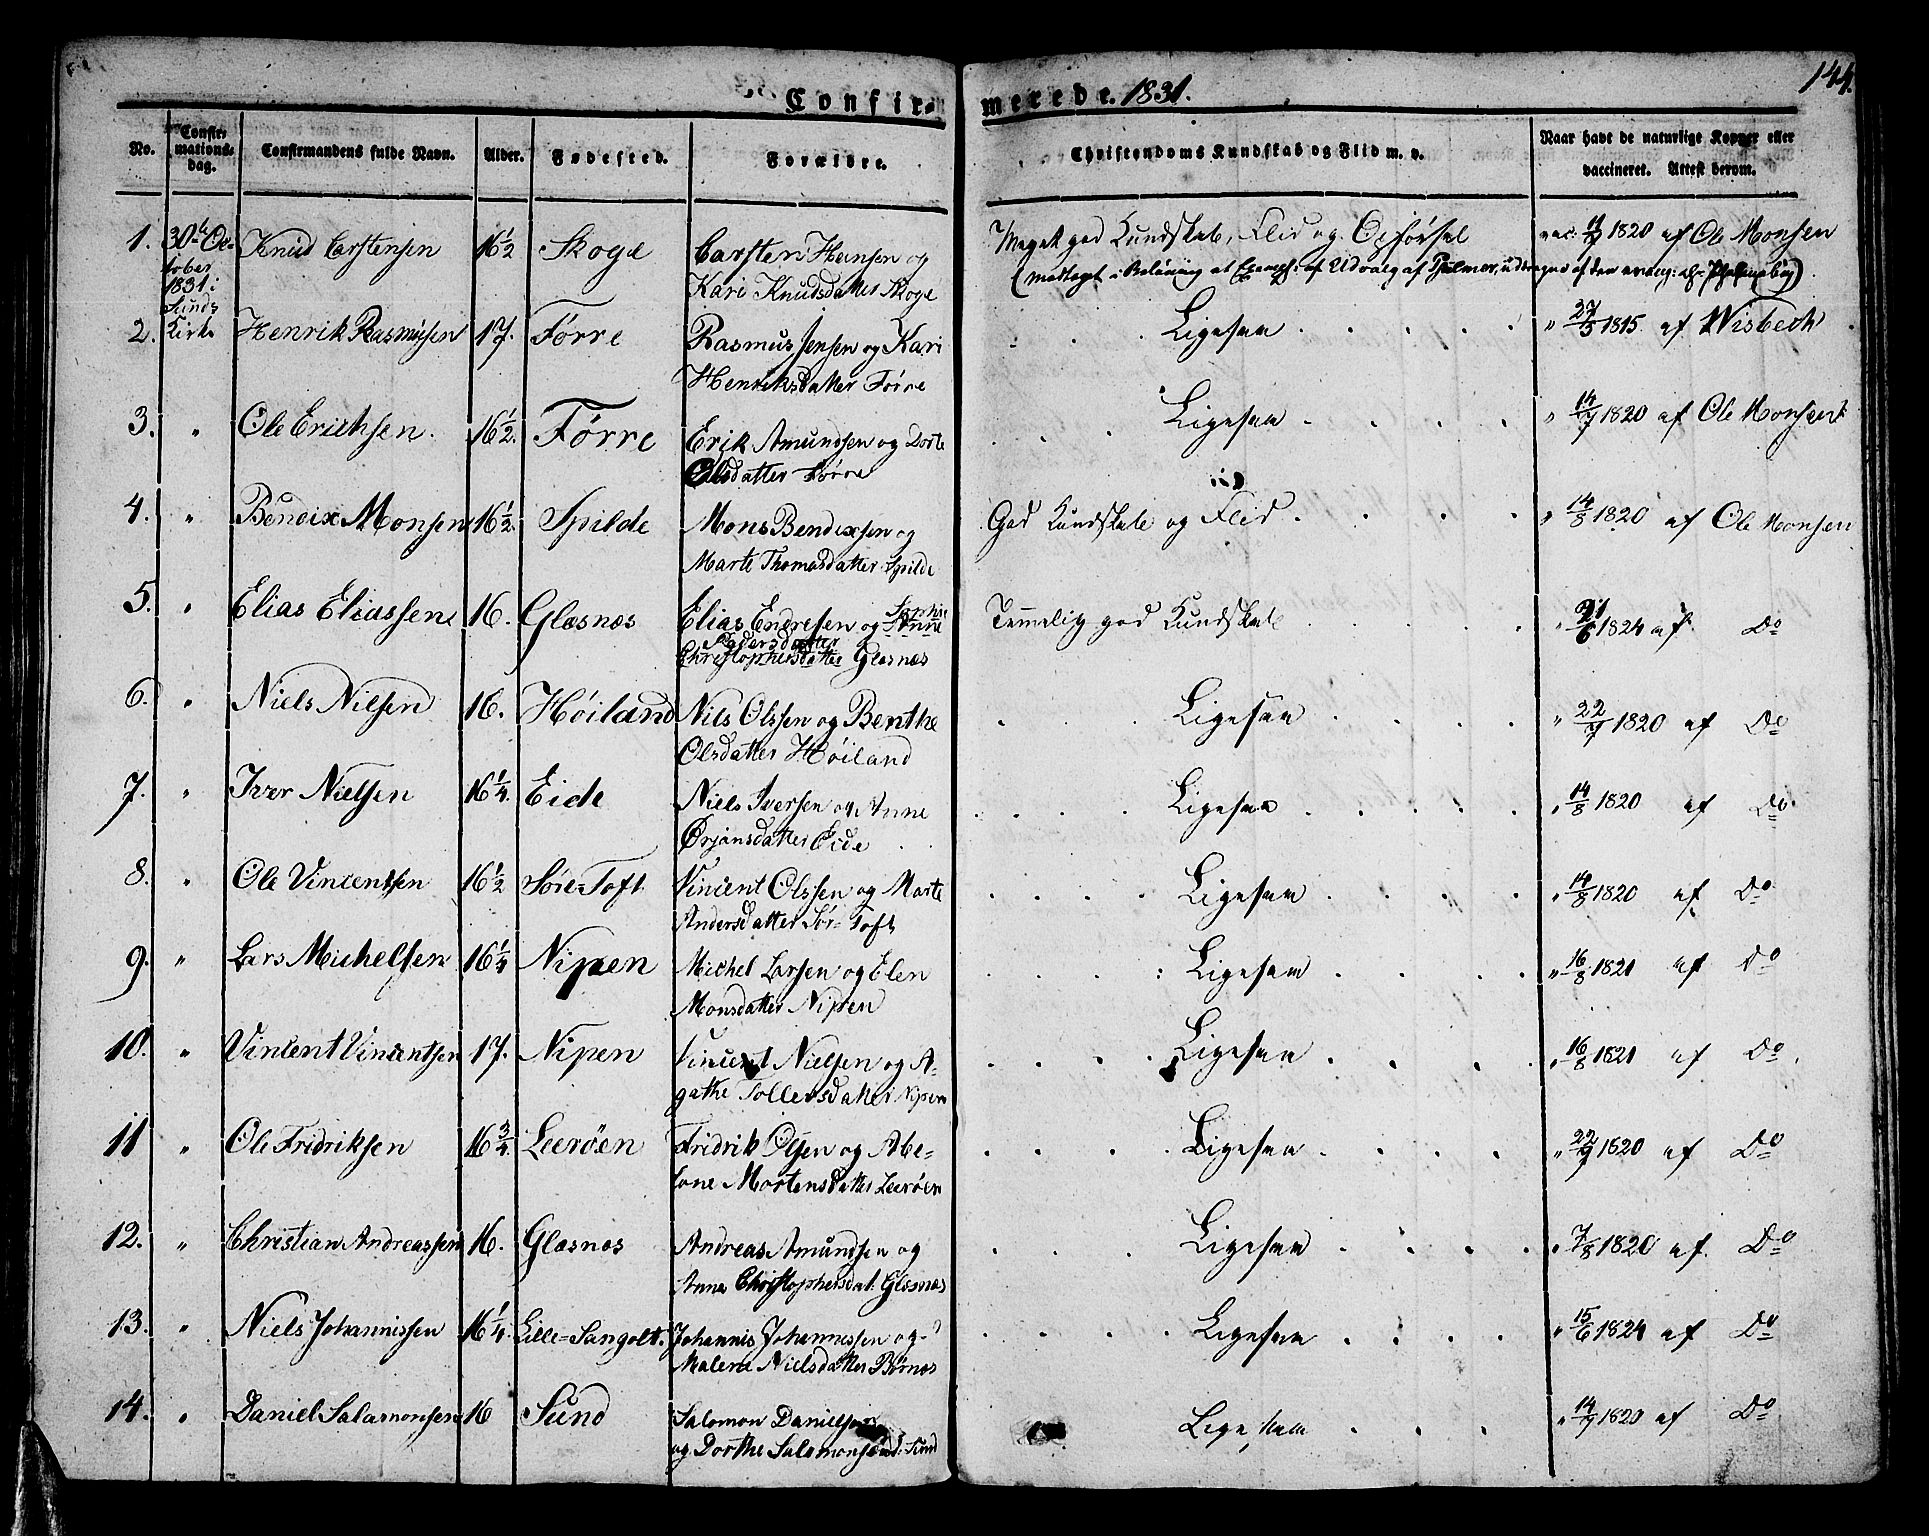 144.
Confir-
merede. 1831.
No.
Confir-
mations-
dag.
Confirmandens fulde Navn.
Alder.
Fødested.
Forældre.
Christendoms Kundskab og Flid m. v.
Naar havt de naturlige Kopper eller
vaccineret. Attest derom.
1. 30te Oc- Knud Carstensen 16 1/2 Skoge Carsten Hansen og Meget god Kundskab, Flid og Opførsel vac: 1820 af Ole Monsen
tober
1831 i
Sunds
Kari Knudsdatter Skoge
2. Kirke Henrik Rasmusen 17. Førre Rasmus Jensen og Kari Ligesaa " 27/5 1815 af Wisbech
Henriksdatter Førre
3. " Ole Erichsen. 16 1/2. Førre Erik Amundsen og Dorte Ligesaa " 14/7 1820 af Ole Monsen
Olsdatter Førre
4. " Bendix Monsen 16 1/2. Spilde Mons Bendixsen og God Kundskab og Flid " 14/8 1820 af Ole Monsen
Marte Thomasdatter Spilde
5. " Elias Eliassen 16. Glæsnæs Elias Endresen og Anne Temmelig god Kundskab " 21/6 1824 af Do
Pedersdatter
Christophersdatter Glæsnæs
6. " Niels Nilsen 16. Høiland Nils Olssen og Benthe Ligesaa " 22/7 1820 af Do
Olsdatter Høiland
7. " Iver Nielsen 16 1/4. Eide Niels Iversen og Anne Ligesaa " 14/8 1820 af Do
Ørjansdatter Eide
8. " Ole Vincentsen 16 1/2 Søre-Toft Vincent Olssen og Marte Ligesaa " 14/8 1820 af Do
Andersdatter Sør-Toft
9. " Lars Michelsen 16 1/4 Nipen Michel Larsen og Elen Ligesaa " 16/8 1821 af Do
Monsdatter Nipen
10. " Vincent Vincentsen 17. Nipen Vincent Nielsen og A- Ligesaa " 16/8 1821 af Do
gathe Tollevsdatter Nipen
11 " Ole Fridriksen 16 3/4. Leerøen Fridrik Olsen og Abe- Ligesaa " 22/7 1820 af Do
lone Mortensdatter Leerøen
12. " Christian Andreassen 16. Glæsnæs Andreas Amundsen og Ligesaa " 7/8 1820 af Do
Anna Christophersdat: Glæsnæs
13. " Niels Johannissen 16 1/4. Lille-Sangolt. Johannis Johannessen og Ligesaa " 15/6 1824 af Do
Malene Nielsdatter Børnæs
14. " Daniel Salamonsen 16 Sund Salomon Danielsen Ligesaa " 14/7 1820 af Do
og Dorthe Salomonsend: Sund